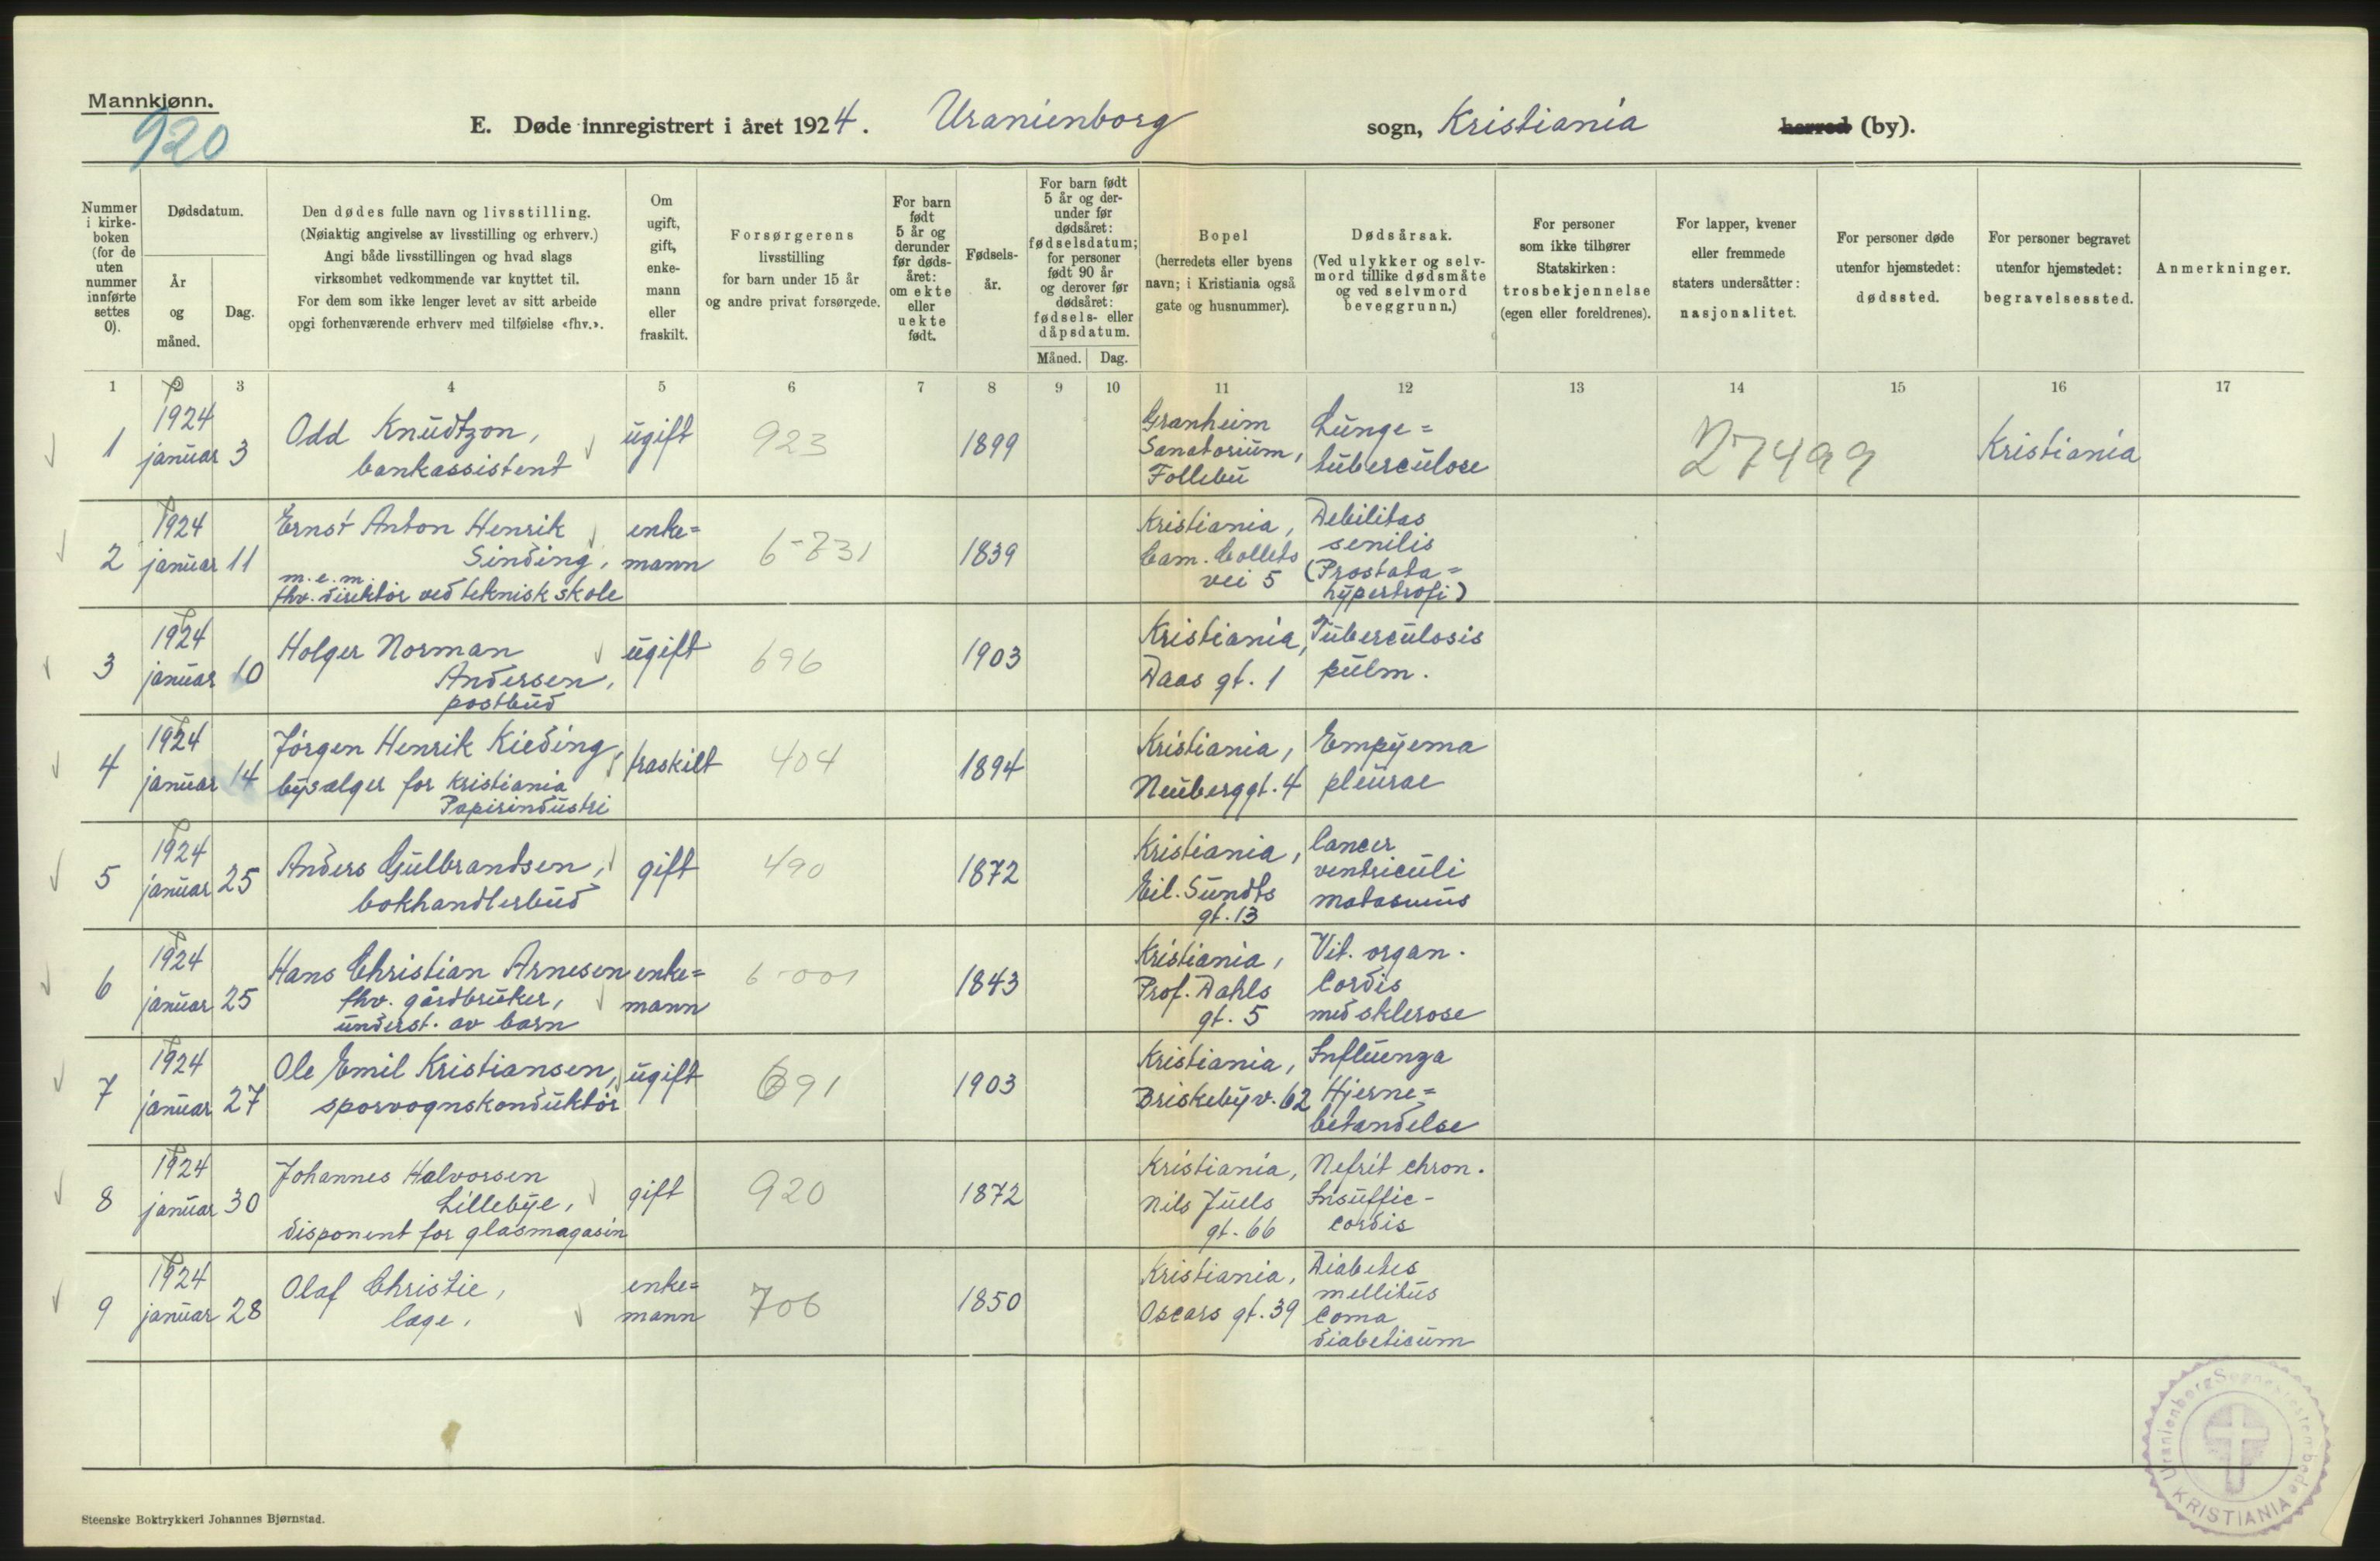 Mannkjønn.
920
E. Døde innregistrert i året 1924. Uranienborg sogn, Kristiania herred (by).
Nummer i kirke-boken (for de uten nummer innførte settes 0).
Dødsdatum.
År og måned.
Dag.
Den dødes fulle navn og livsstilling.
(Nøiaktig angivelse av livsstilling og erhverv.)
Angi både livsstillingen og hvad slags
virksomhet vedkommende var knyttet til.
For dem som ikke lenger levet av sitt arbeide
opgi forhenværende erhverv med tilføielse «fhv.».
Om ugift, gift, enke-mann eller fraskilt.
Forsørgerens
livsstilling
for barn under 15 år
og andre privat forsørgede.
For barn født 5 år og derunder før døds-året: om ekte eller uekte født.
Fødsels-år.
For barn født 5 år og der-under før dødsåret: fødselsdatum; for personer født 90 år og derover før dødsåret: fødsels- eller dåpsdatum.
Måned. Dag.
Bopel
(herredets eller byens
navn; i Kristiania også
gate og husnummer).
Dødsårsak.
(Ved ulykker og selv-
mord tillike dødsmåte
og ved selvmord
beveggrunn.)
For personer
som ikke tilhører
Statskirken:
trosbekjennelse
(egen eller foreldrenes).
For lapper, kvener
eller fremmede
staters undersåtter:
nasjonalitet.
For personer døde
utenfor hjemstedet:
dødssted.
For personer begravet
utenfor hjemstedet:
begravelsessted.
Anmerkninger.
1 2 3 4 5 6 7 8 9 10 11 12 13 14 15 16 17
1 1924 januar 3 Odd Knudtzon, bankassistent ugift 923 1899 Granheim Sanatorium, Follebu Lunge= tuberculose 27499 Kristiania
2 1924 januar 11 Ernst Anton Henrik Sinding, m.e.m. fhv. direktør ved teknisk skole enke= mann 6-831 1839 Kristiania, Cam. Collets vei 5 Debilitas senilis (Prostata= hypertrofi)
3 1924 januar 10 Holger Norman Andersen, postbud ugift 696 1903 Kristiania, Daas gt. 1 Tuberculosis pulm.
4 1924 januar 14 Jørgen Henrik Kieding, bysælger for Kristiania Papirindustri fraskilt 404 1894 Kristiania, Neuberggt. 4 Empyema pleurae
5 1924 januar 25 Anders Gulbrandsen, bokhandlerbud gift 490 1872 Kristiania, Eil. Sundts gt. 13 Cancer ventriculi
6 1924 januar 25 Hans Christian Arnesen fhv. gårdbruker, underst. av barn enke= mann 6-001 1843 Kristiania, Prof. Dahls gt. 5 Vit. organ. Cordis med sklerose
7 1924 januar 27 Ole Emil Kristiansen, sporvognskonduktør ugift 691 1903 Kristiania, Briskebyv. 62 Influenza Hjerne= betændelse
8 1924 januar 30 Johannes Halvorsen Lillebye, disponent for glasmagasin gift 920 1872 Kristiania, Nils Juels gt. 66 Nefrit chron. Insuffic- cordis
9 1924 januar 28 Olaf Christie, læge, enke= mann 706 1850 Kristiania, Oscars gt. 39 Diabetes mellitus Coma diabeticum
Steenske Boktrykkeri Johannes Bjørnstad.
Uranienborg Sogneprestembede KRISTIANIA